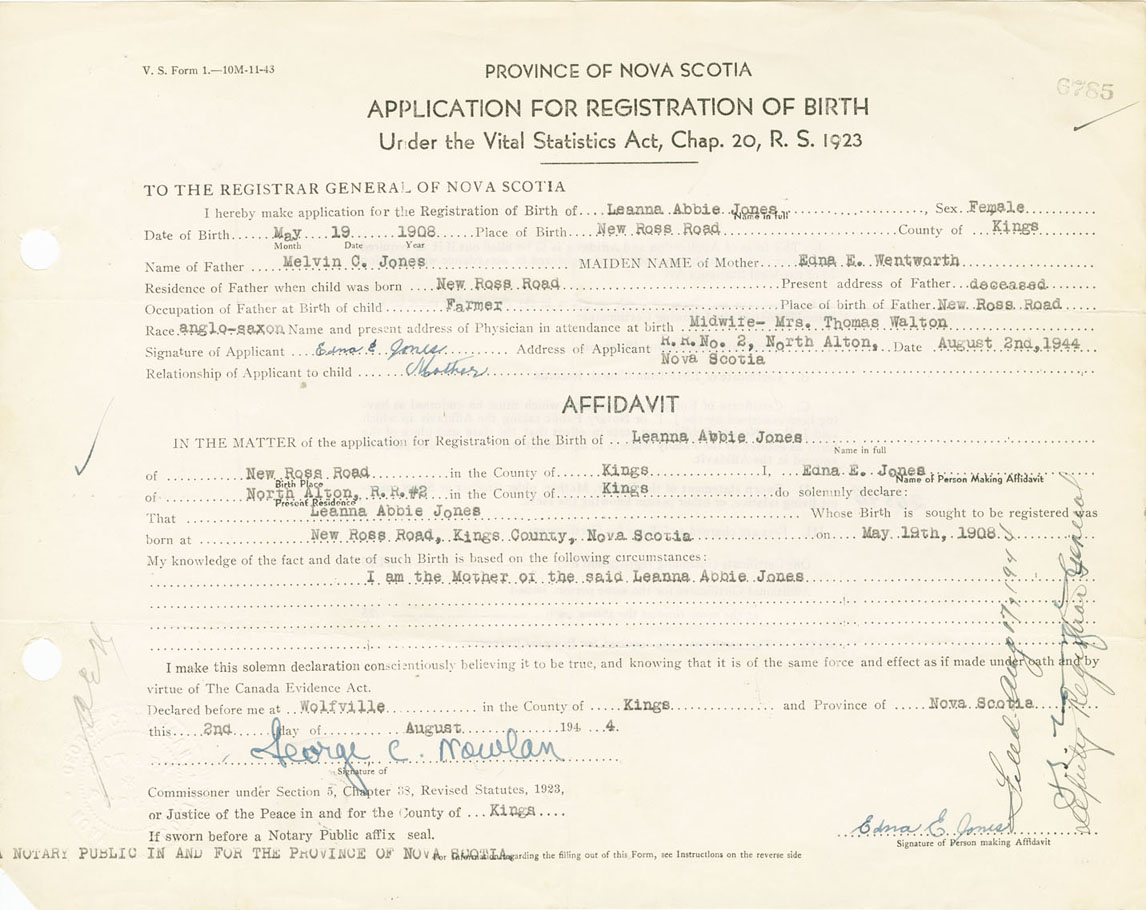 V. S. Form 1.—10M-11-43
PROVINCE OF NOVA SCOTIA
6785
APPLICATION FOR REGISTRATION OF BIRTH
Under the Vital Statistics Act, Chap. 20, R. S. 1923
TO THE REGISTRAR GENERAL OF NOVA SCOTIA
I hereby make application for the Registration of Birth of....Leanna Abbie Jones............, Sex Female
Name in full
Date of Birth......May 19 1908......Place of Birth....New Ross Road......County of ..Kings
Month Date Year
Name of Father ....Melvin C. Jones............ MAIDEN NAME of Mother.....Edna E. Wentworth
Residence of Father when child was born ....New Ross Road............Present address of Father..deceased
Occupation of Father at Birth of child ......Farmer............Place of birth of Father.New Ross Road
Race.anglo-saxon Name and present address of Physician in attendance at birth ..Midwife- Mrs. Thomas Walton
Signature of Applicant ....Edna E. Jones...... Address of Applicant R.R.No. 2, North Alton, Nova Scotia Date August 2nd, 1944
Relationship of Applicant to child ......Mother
AFFIDAVIT
IN THE MATTER of the application for Registration of the Birth of ...Leanna Abbie Jones
Name in full
of ......New Ross Road......in the County of......Kings............I, ....Edna E. Jones
Birth Place
Name of Person Making Affidavit
of ......North Alton, R.R.#2...in the County of......Kings............do solemnly declare:
Present Residence
That ......Leanna Abbie Jones............Whose Birth is sought to be registered was
born at ......New Ross Road, Kings County, Nova Scotia......on....May 19th, 1908
My knowledge of the fact and date of such Birth is based on the following circumstances:
I am the Mother of the said Leanna Abbie Jones
I make this solemn declaration conscientiously believing it to be true, and knowing that it is of the same force and effect as if made under oath and by
virtue of The Canada Evidence Act.
Declared before me at ..Wolfville......in the County of ....Kings......and Province of ....Nova Scotia
this.....2nd......day of......August......194..4.
George C. Nowlan
Signature of
Commissoner under Section 5, Chapter 38, Revised Statutes, 1923,
or Justice of the Peace in and for the County of ...Kings....
If sworn before a Notary Public affix seal.
A NOTARY PUBLIC IN AND FOR THE PROVINCE OF NOVA SCOTIA.
For Information regarding the filling out of this Form, see Instructions on the reverse side
Edna E. Jones
Signature of Person making Affidavit
Filed Aug 17, 1944
Deputy Registrar General